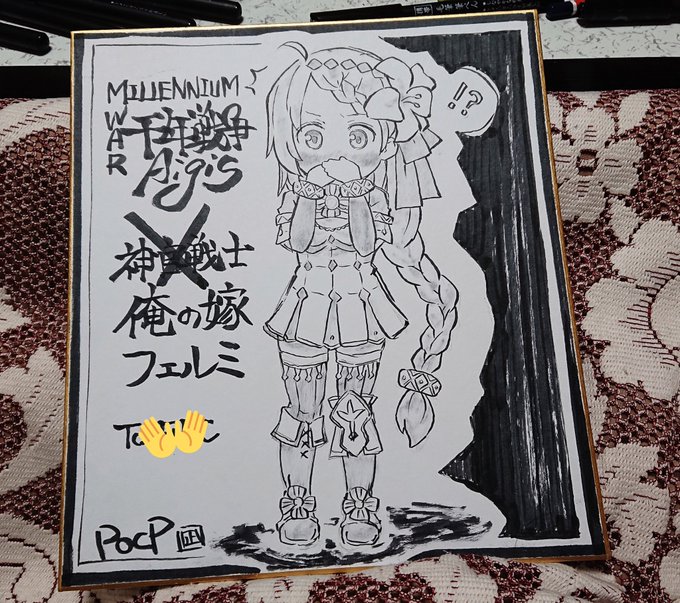 MILLENNIUM
WAR
千年戦争
Aigis
!?
神官戦士
俺の嫁
フェルミ
To
POCP